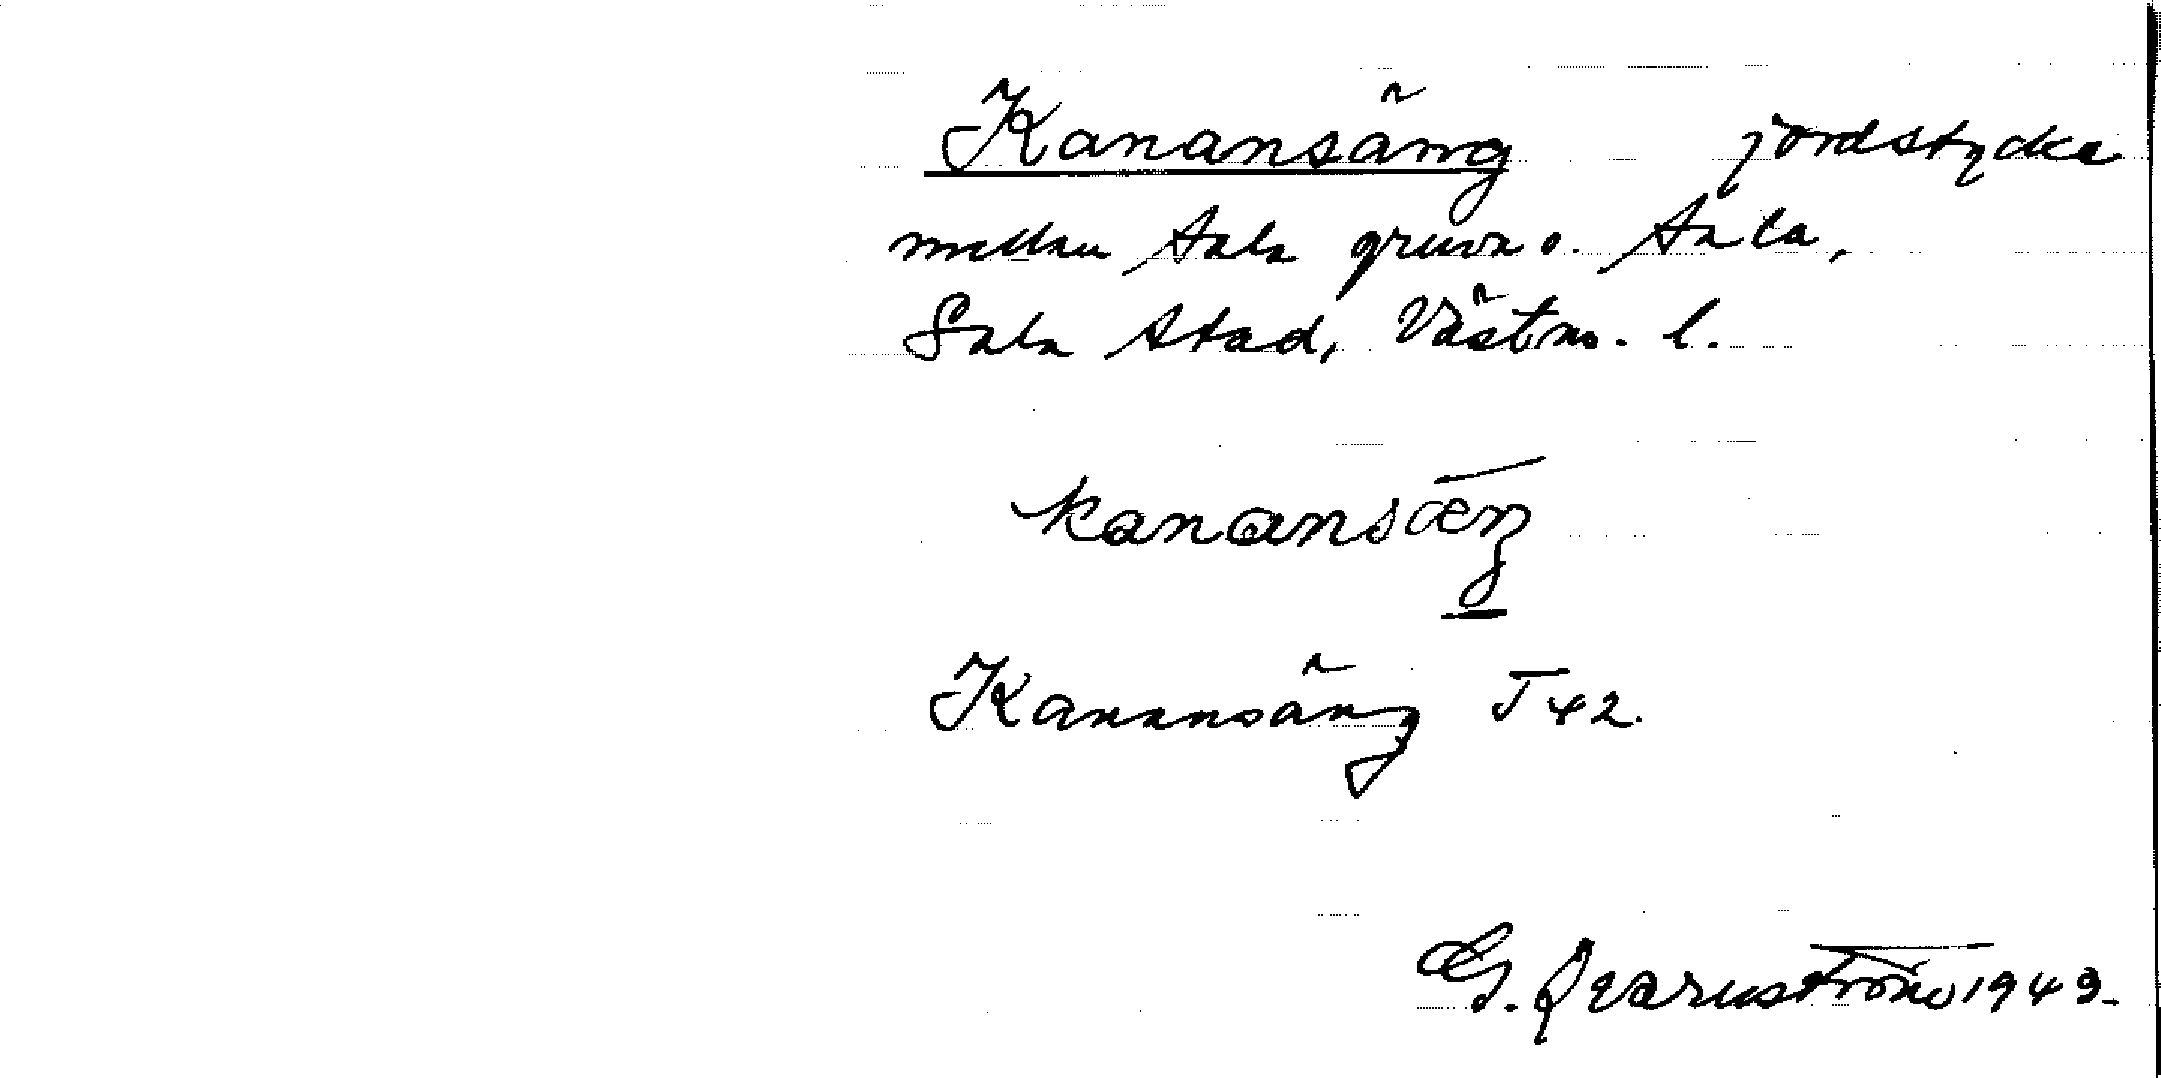 Kanansäng jordstycke
mellan Sala gruva o. Sala,
Sala stad, Västm. l.
kanansæŋ
Kanansäng T 42.
G. Qvarnström 1943.